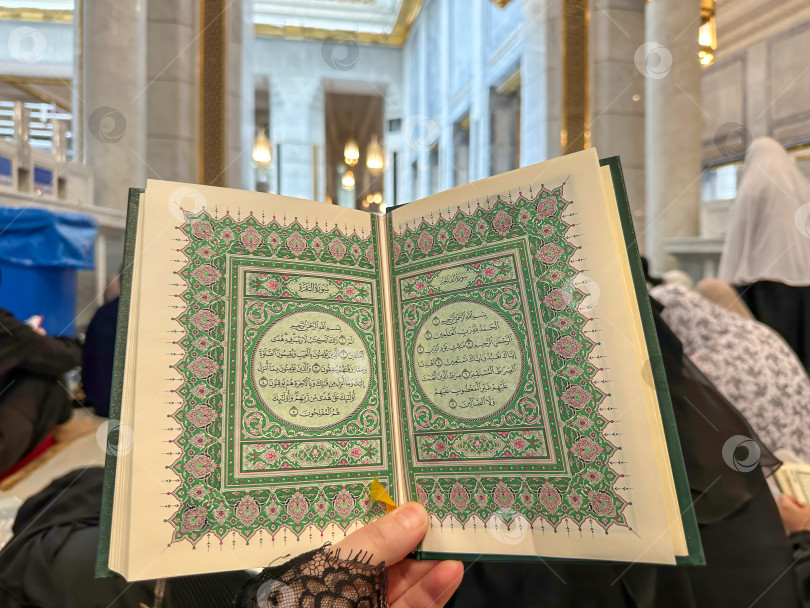 سُورَةُ الفَاتِحَةِ
بِسْمِ ٱللَّهِ ٱلرَّحْمَٰنِ ٱلرَّحِيمِ ۝١
ٱلْحَمْدُ لِلَّهِ رَبِّ ٱلْعَٰلَمِينَ ۝٢
ٱلرَّحْمَٰنِ ٱلرَّحِيمِ ۝٣ مَٰلِكِ يَوْمِ ٱلدِّينِ ۝٤
إِيَّاكَ نَعْبُدُ وَإِيَّاكَ نَسْتَعِينُ ۝٥ ٱهْدِنَا
ٱلصِّرَٰطَ ٱلْمُسْتَقِيمَ ۝٦ صِرَٰطَ ٱلَّذِينَ أَنْعَمْتَ
عَلَيْهِمْ غَيْرِ ٱلْمَغْضُوبِ عَلَيْهِمْ
وَلَا ٱلضَّآلِّينَ ۝٧
سُورَةُ البَقَرَةِ
بِسْمِ ٱللَّهِ ٱلرَّحْمَٰنِ ٱلرَّحِيمِ
الٓمٓ ۝١ ذَٰلِكَ ٱلْكِتَٰبُ لَا رَيْبَ ۛ فِيهِ ۛ هُدًى
لِّلْمُتَّقِينَ ۝٢ ٱلَّذِينَ يُؤْمِنُونَ بِٱلْغَيْبِ وَيُقِيمُونَ ٱلصَّلَوٰةَ
وَمِمَّا رَزَقْنَٰهُمْ يُنفِقُونَ ۝٣ وَٱلَّذِينَ يُؤْمِنُونَ بِمَآ أُنزِلَ
إِلَيْكَ وَمَآ أُنزِلَ مِن قَبْلِكَ وَبِٱلْأَخِرَةِ هُمْ يُوقِنُونَ ۝٤
أُو۟لَٰٓئِكَ عَلَىٰ هُدًى مِّن رَّبِّهِمْ ۖ وَأُو۟لَٰٓئِكَ
هُمُ ٱلْمُفْلِحُونَ ۝٥